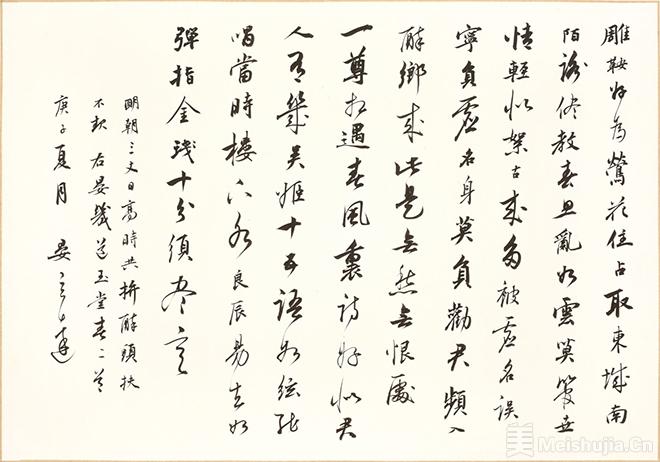 雕鞍好為鶯花住占取東城南
陌路儘教春思亂如雲莫管世
情輕似絮古來多被虛名誤
寧負虛名身莫負勸君頻入
醉鄉來此是无愁无恨處
一尊相遇春風裏詩好似君
人有幾吳姬十五語如絃能
唱當時樓下水良辰易去如
彈指金盞十分須盡意
明朝三丈日高時共拚醉頭扶
不起 右晏幾道玉堂春二首
庚子夏月 晏
美 Meishujia.Cn